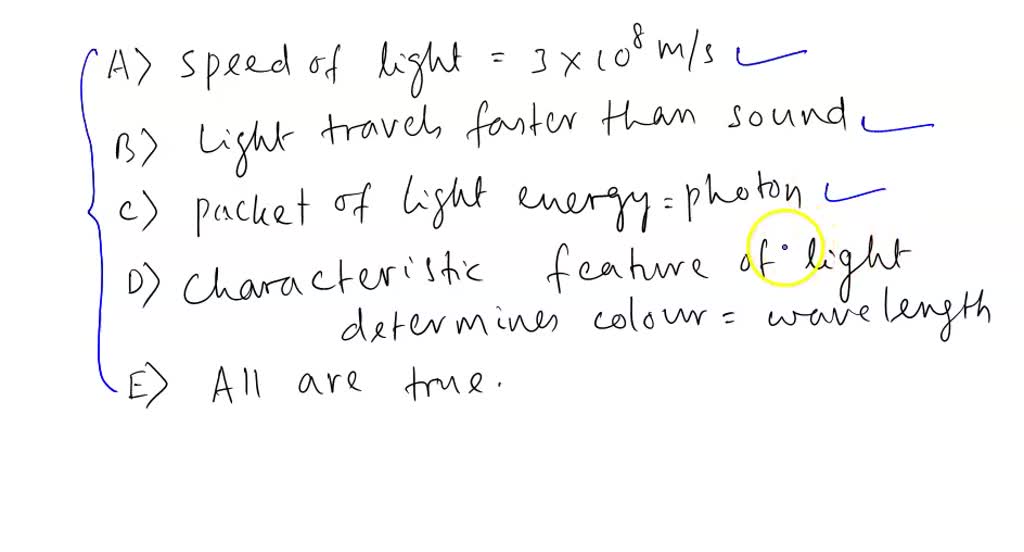 A) speed of light = 3 x 10⁸ m/s
B) Light travels faster than sound
C) packet of light energy = photon
D) characteristic feature of light
determines colour = wavelength
E) All are true.